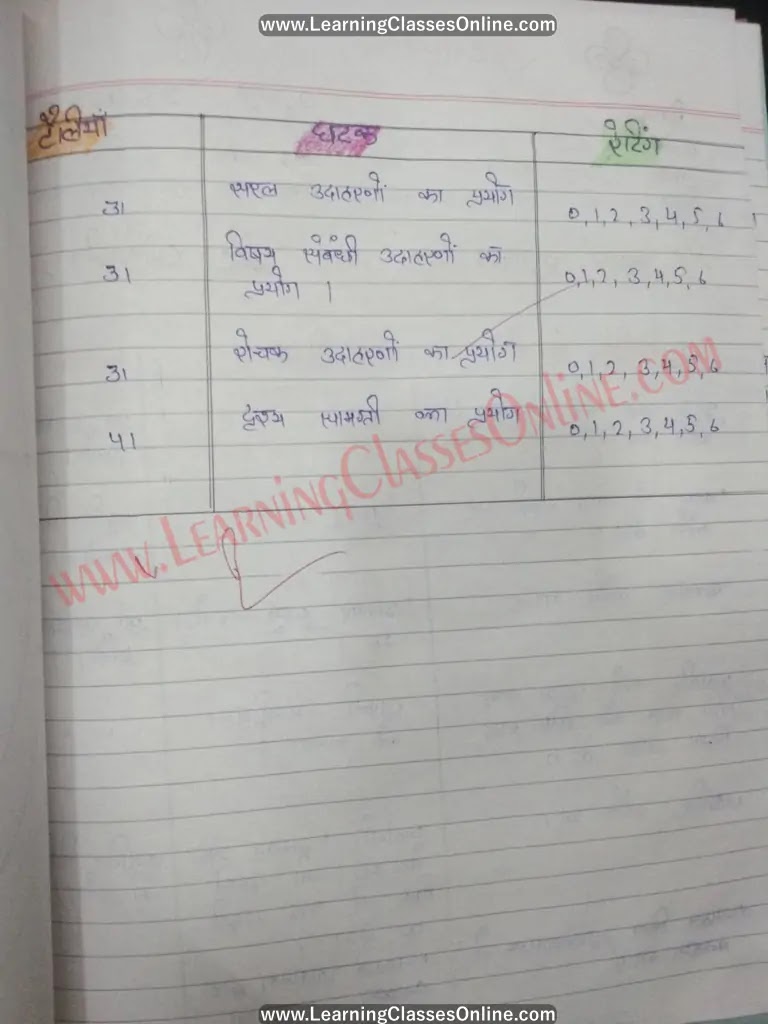 www.LearningClassesOnline.com
टैलीयाँ घटक रेटिंग
31 सरल उदाहरणों का प्रयोग 0,1,2, 3,4,5,6
31 विषय संबंधी उदाहरणों का 0,1,2, 3,4,5,6
प्रयोग ।
31 रोचक उदाहरणों का प्रयोग 0,1,2, 3,4,5,6
41 दृश्य सामग्री का प्रयोग 0,1,2, 3,4,5,6
www.LearningClassesOnline.com
www.LearningClassesOnline.com